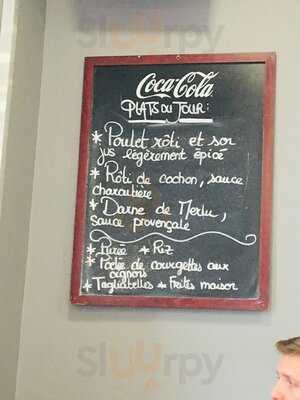 Sluurpy
Coca-Cola
PLATS DU JOUR:
* Poulet rôti et son
jus légèrement épicé
* Rôti de cochon, sauce
charcutière
* Darne de Merlu,
sauce provençale
* Purée * Riz
* Poêlée de courgettes aux
oignons
* Tagliatelles * Frites maison
Sluurpy